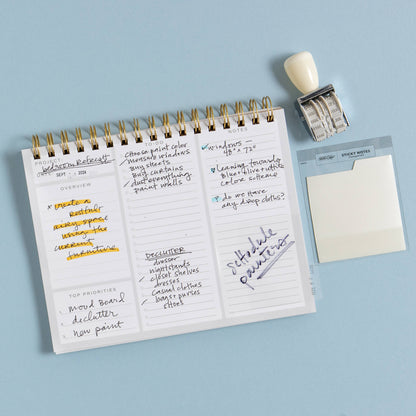 PROJECT
bedroom Refresh
SEPT 2024
OVERVIEW
create a
restful
airy space
using the
current
furniture
TOP PRIORITIES
1. mood Board
2. declutter
3. new paint
TO-DO
choose paint color
✓ measure windows
Buy sheets
Buy curtains
✓ dust everything
paint walls
DECLUTTER
dresser
nightstands
✓ closet shelves
dresses
✓ casual clothes
bags & purses
✓ shoes
NOTES
✓ windows -
48" x 72"
leaning towards
blue & white
color scheme
? do we have
any drop cloths?
schedule
painters
STICKY NOTES